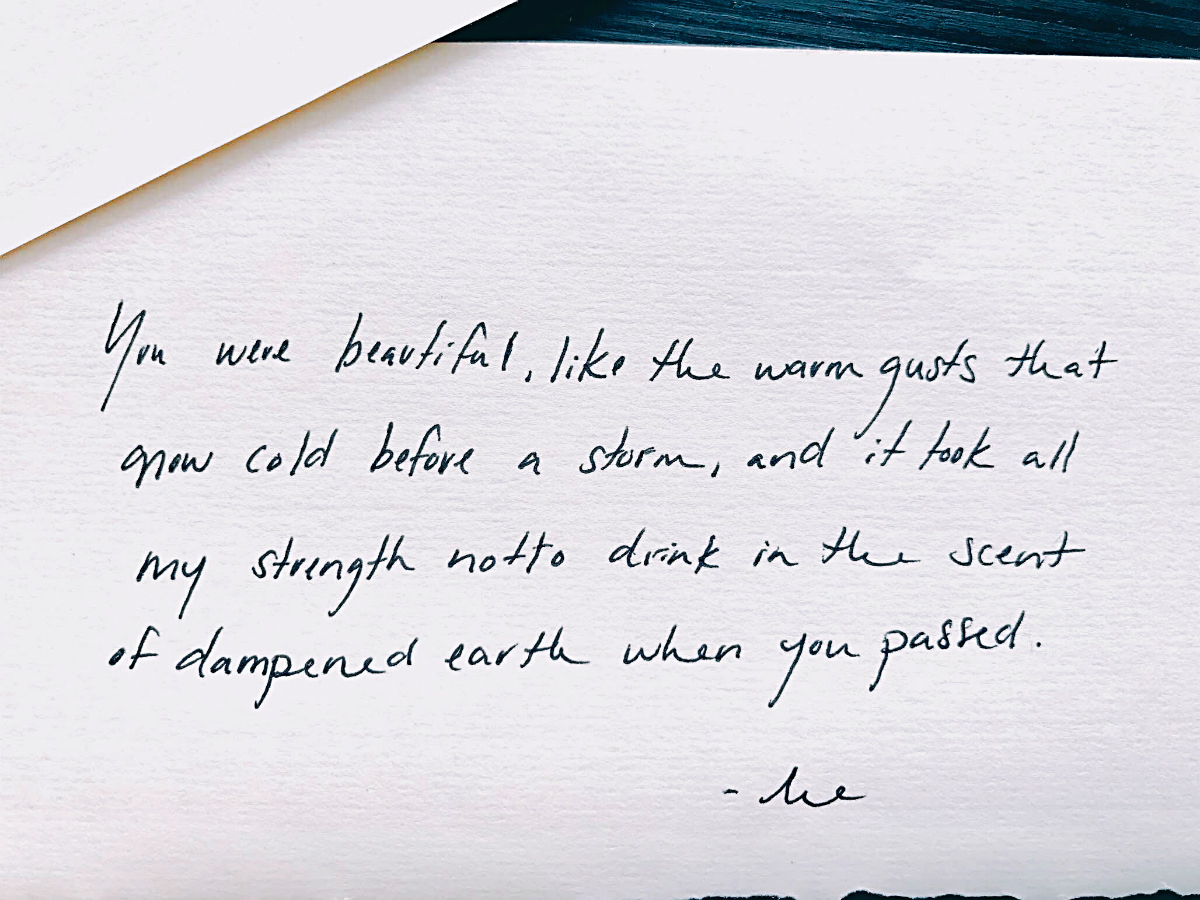 You were beautiful, like the warm gusts that
grow cold before a storm, and it took all
my strength not to drink in the scent
of dampened earth when you passed.
- he